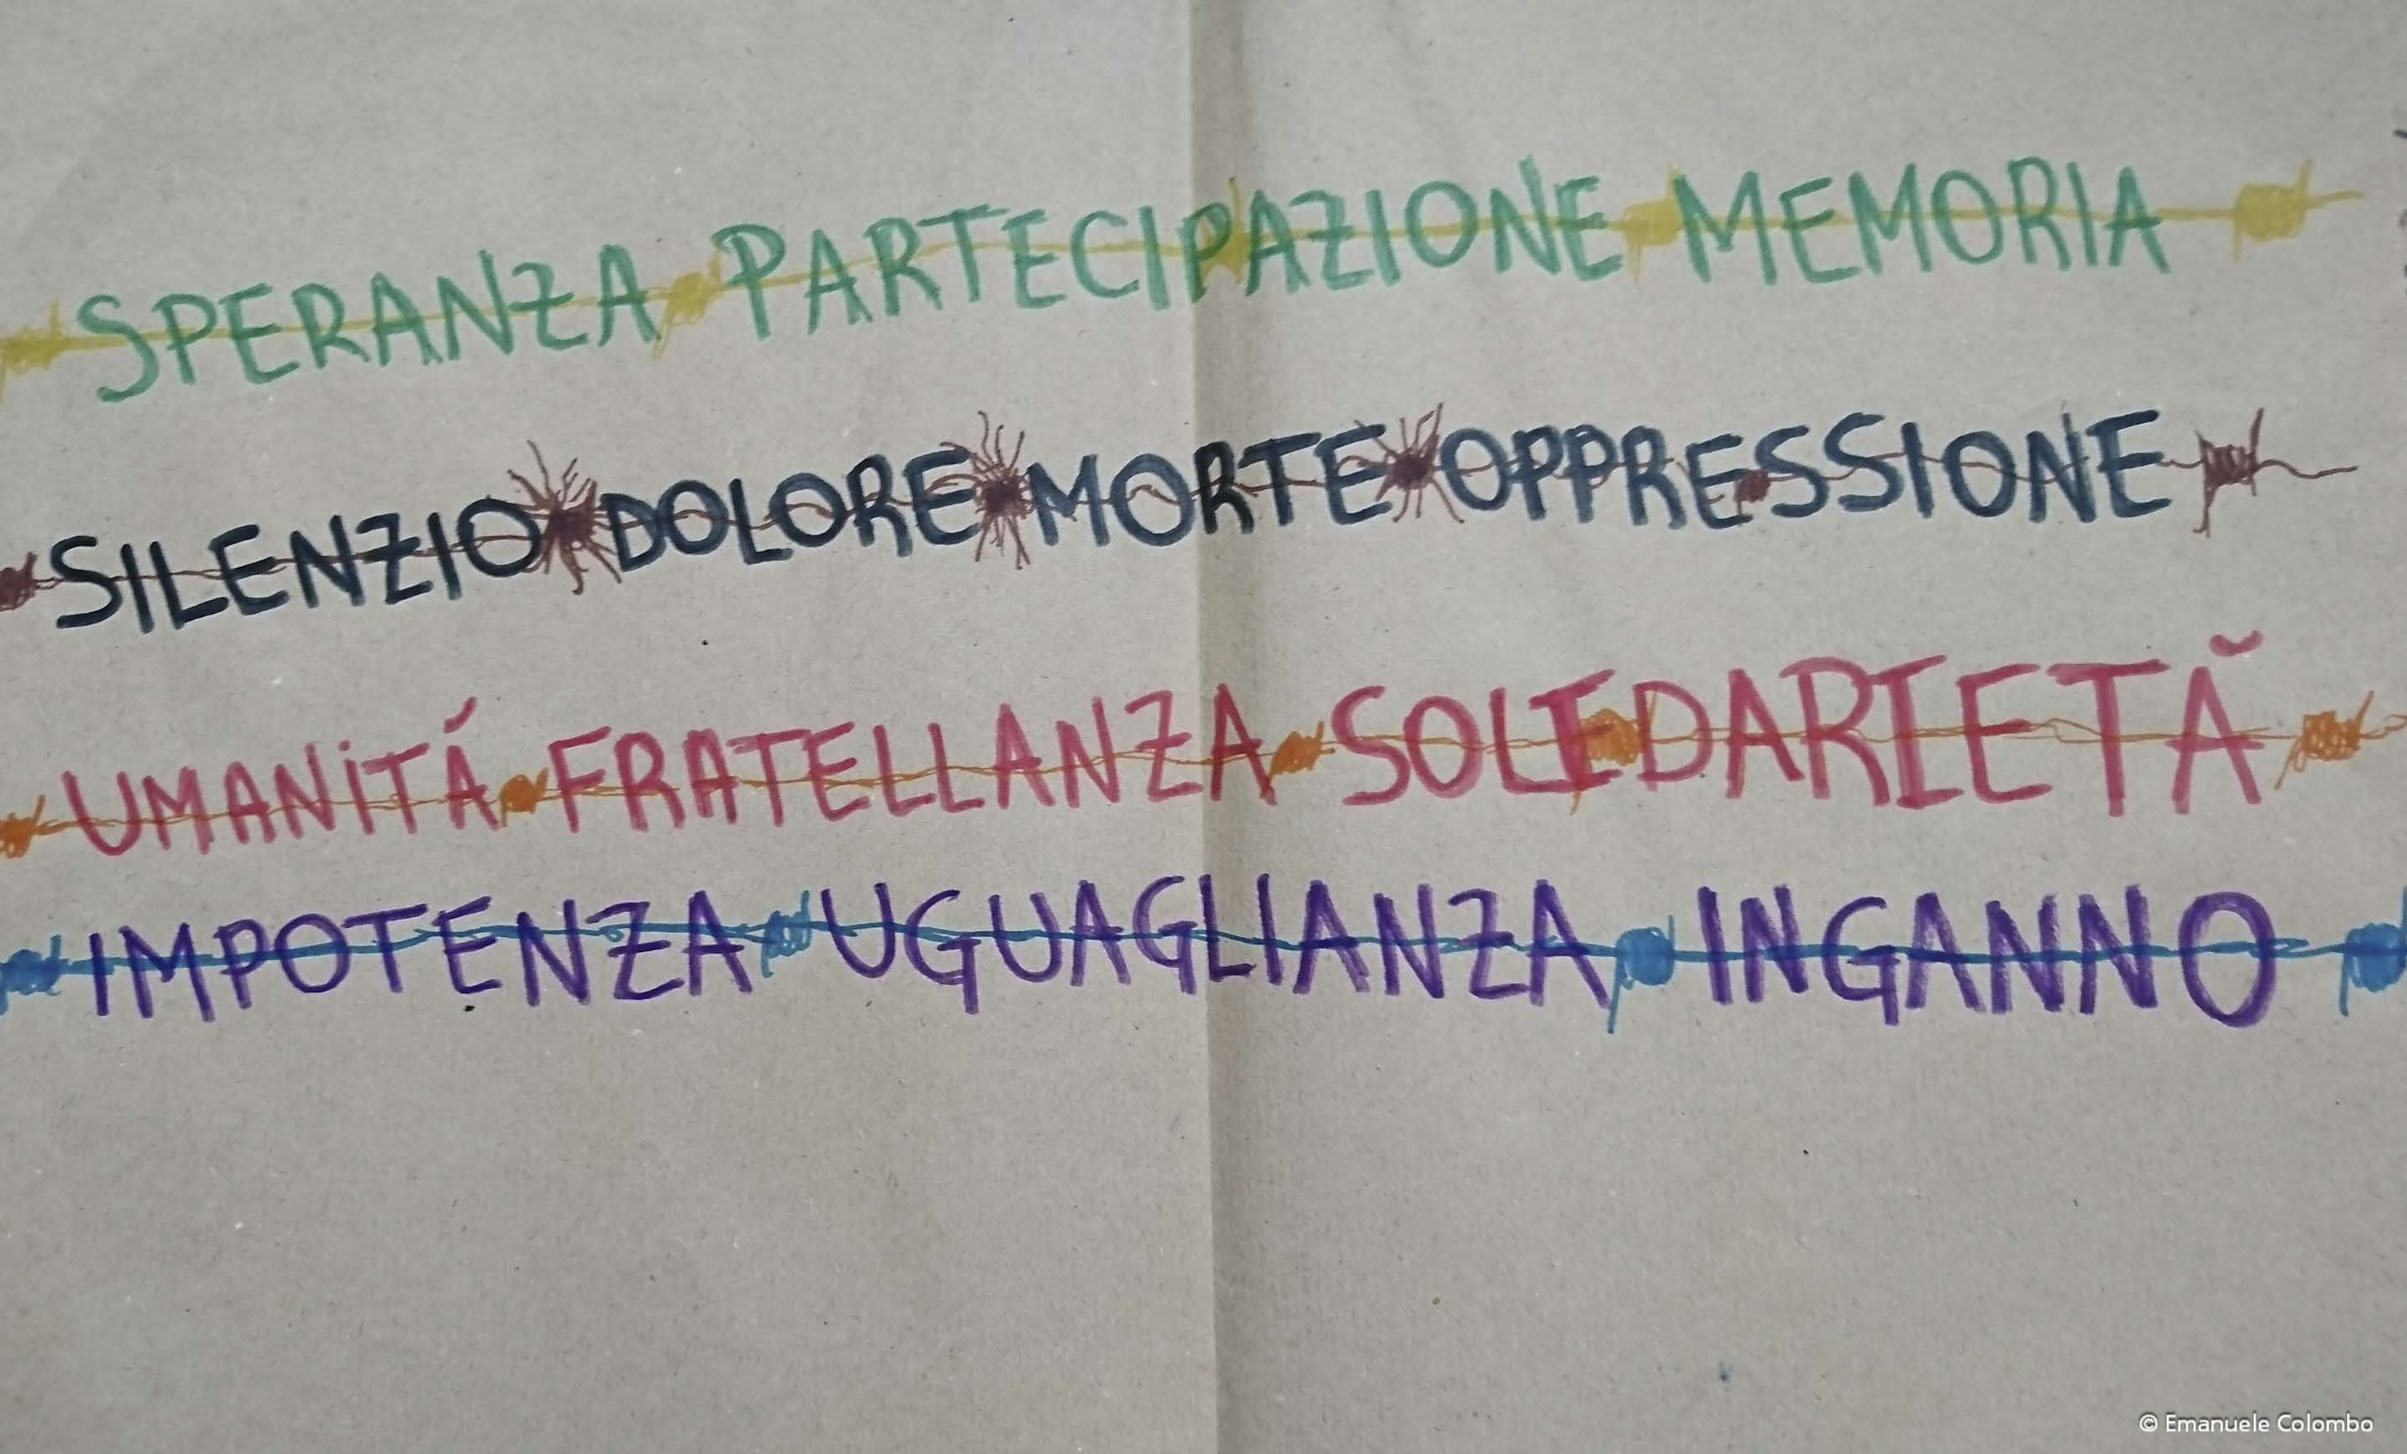 SPERANZA PARTECIPAZIONE MEMORIA
SILENZIO DOLORE MORTE OPPRESSIONE
UMANITÁ FRATELLANZA SOLIDARIETĂ
IMPOTENZA UGUAGLIANZA INGANNO
© Emanuele Colombo